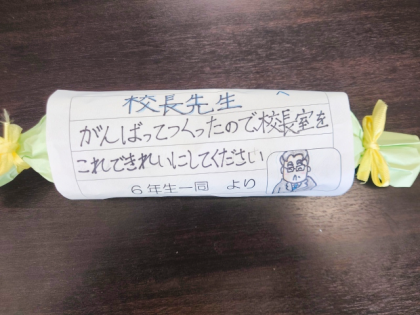 校長先生 へ
がんばってつくったので、校長室を
これできれいにしてください
6年生一同 より